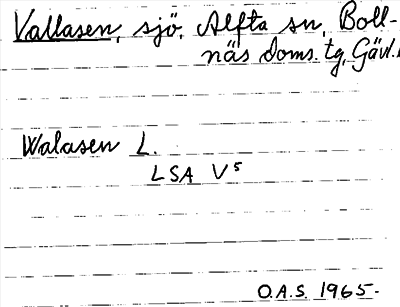 Vallasen, sjö, Alfta sn, Boll-
näs doms.tg, Gävl.
Walasen L.
LSA V⁵
O.A.S. 1965.